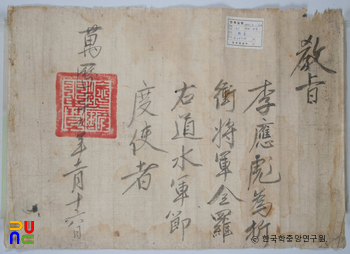 教旨
李應彪爲折
衝將軍全羅
右道水軍節
度使者
萬曆 年 月十六日
© 한국학중앙연구원